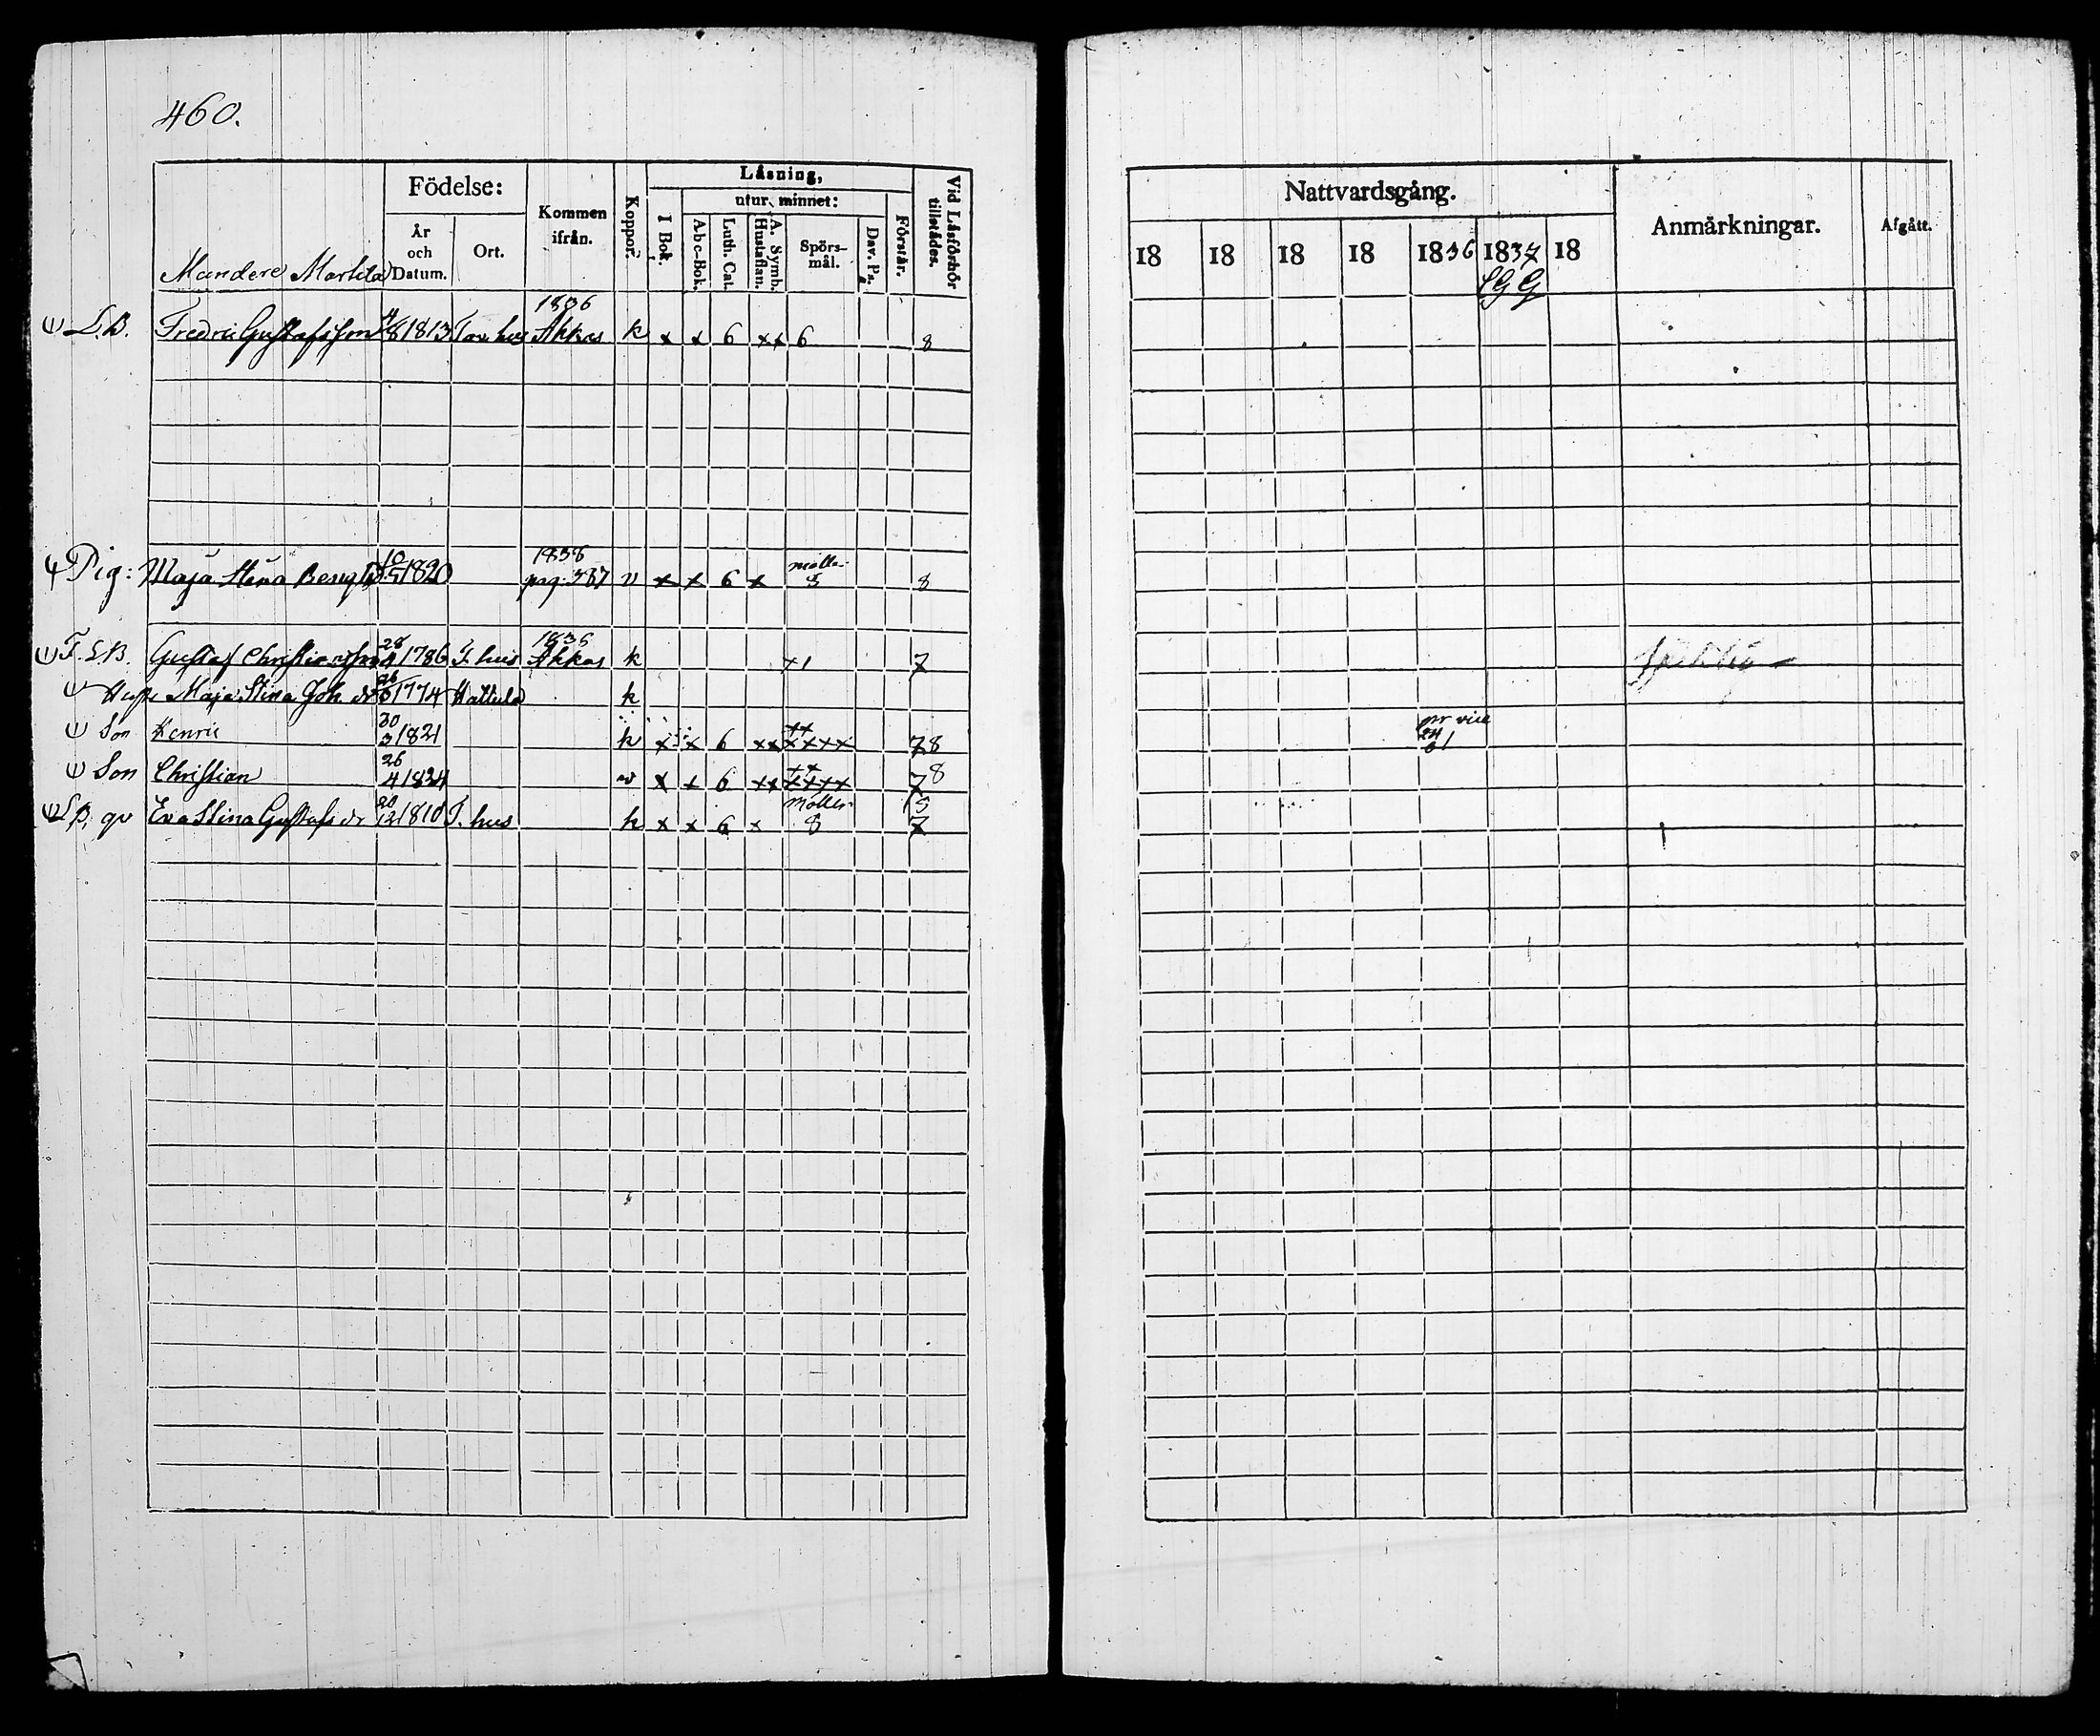 460.
Födelse: Kommen ifrån. Koppor. Läsning, Vid Läsförhör tillstädes.
År och Datum. Ort. I Bok. utur minnet: Förstår.
Abc-Bok. Luth. Cat. A. Symb. Hustaflan. Spörs-mål. Dav. Ps.
Nattvardsgång. Anmärkningar. Afgått.
18 18 18 18 1836 1837 18
Mandere Marttila
1836
L.B. Fredric Gustafsson 8 1813 Tav. hus Akkas k x x 6 xx 6 8
1838
Pig: Maja Stina Bengts 10 5 1820 pag. 387 v x x 6 x 5 8
1836
F. L.B. Gustaf Christiansson 28 4 1786 T. hus Akkas k x1 7
Hust. Maja Stina Joh. dr 26 6 1774 Hattula k
Son Henric 30 3 1821 k x x 6 xx xx xxxx 78
24 6
Son Christian 26 4 1824 v x x 6 xx xx xxxx 78
L.B. qv Eva Stina Gustafs dr 20 12 1810 T. hus k x x 6 x 8 7